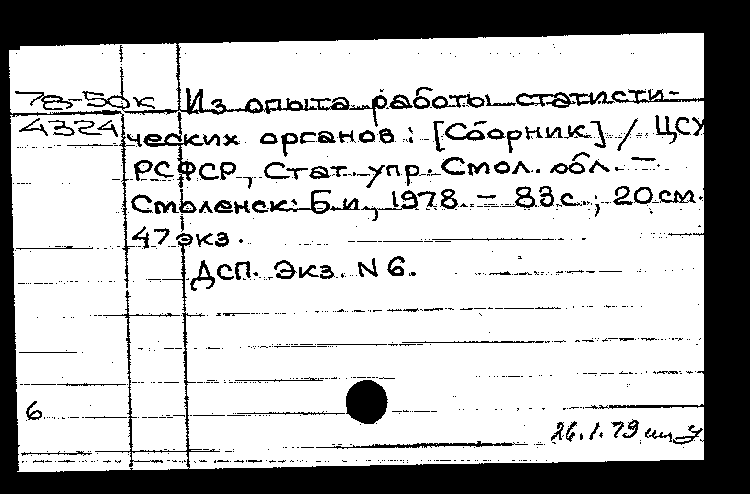 78-50к Из опыта работы статисти-
4324 ческих органов : [Сборник] / ЦСУ
РСФСР, Стат. упр. Смол. обл. —
Смоленск: Б.и., 1978. - 83 с ; 20 см.
47 экз.
ДСП. Экз. N 6.
6
26.1.79